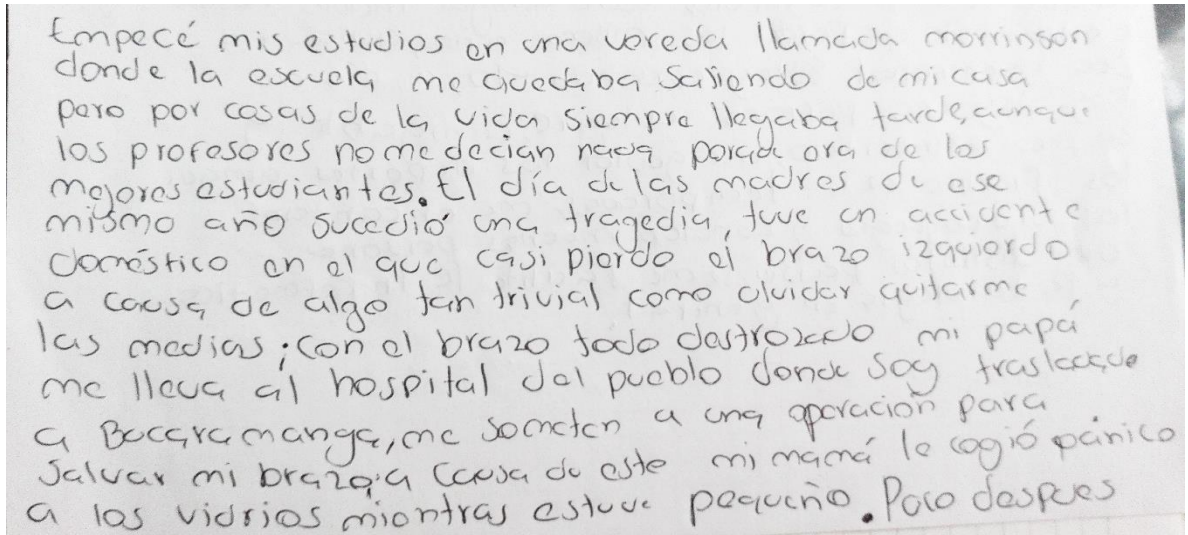 Empecé mis estudios en una vereda llamada morrinson
donde la escuela me quedaba saliendo de mi casa
pero por cosas de la vida siempre llegaba tarde, aunque
los profesores no me decian nada porque era de los
mejores estudiantes. El día de las madres de ese
mismo año sucedió una tragedia, tuve un accidente
doméstico en el que casi pierdo el brazo izquierdo
a causa de algo tan trivial como olvidar quitarme
las medias; con el brazo todo destrozado mi papá
me lleva al hospital del pueblo donde soy trasladado
a Bucaramanga, me someten a una operación para
salvar mi brazo; a causa de este mi mamá le cogió pánico
a los vidrios mientras estuve pequeño. Poco despues